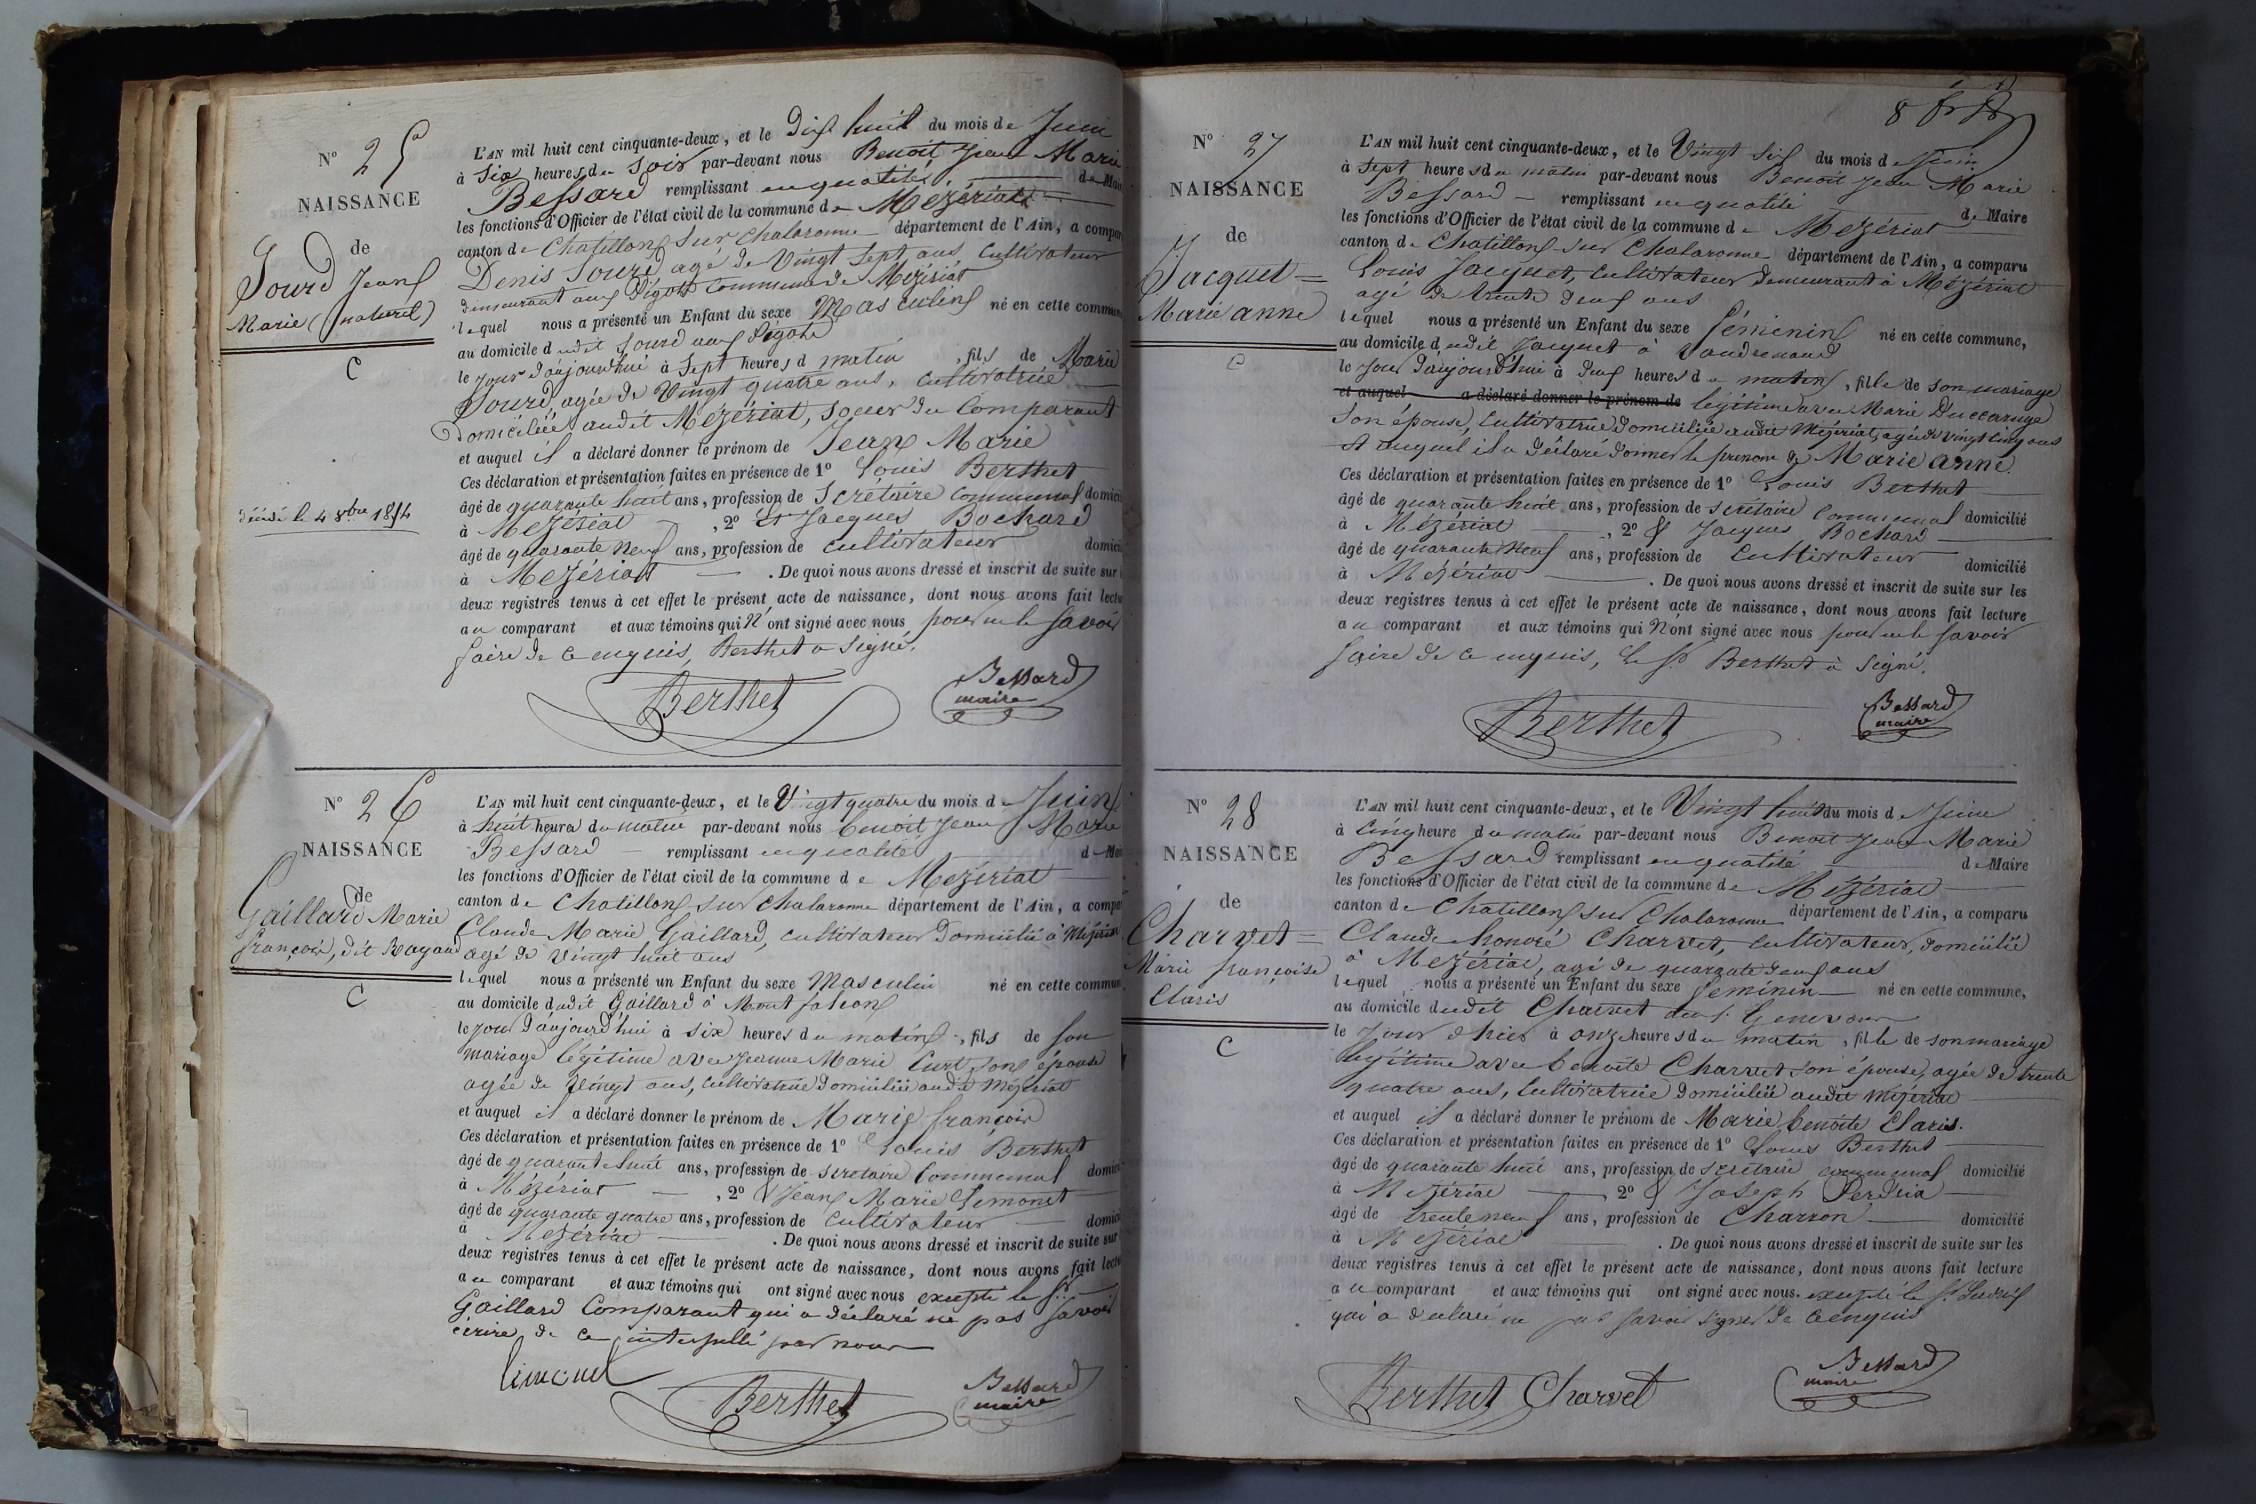 N° 25
NAISSANCE
de
Sourd Jean
Marie (naturel)
C
décédé le 4 8bre 1854
L'AN mil huit cent cinquante-deux, et le Dix huit du mois de Juin
à Six heures du Soir par-devant nous Benoit Jean Marie
Bessard remplissant en qualité de Mair
les fonctions d'Officier de l'état civil de la commune de Mézériat
canton de Chatillon sur Chalaronne département de l'Ain, a compar
Denis Sourd agé de Vingt Sept ans Cultivateur
demeurant aux Pigots Commune de Mézériat
lequel nous a présenté un Enfant du sexe Masculin né en cette commun
au domicile dudit Sourd aux Pigots
le jour d'aujourd'hui à Sept heures d matin , fils de Marie
Sourd, agée de Vingt quatre ans, Cultivatrice
domiciliée audit Mézériat, soeur du Comparant
et auquel il a déclaré donner le prénom de Jean Marie
Ces déclaration et présentation faites en présence de 1° Louis Berthet
âgé de quarante huit ans, profession de Scrétaire Communal domici
à Mézériat , 2° Et Jacques Bochard
âgé de quarante Neuf ans, profession de Cultivateur domici
à Mézériat . De quoi nous avons dressé et inscrit de suite sur
deux registres tenus à cet effet le présent acte de naissance, dont nous avons fait lectu
au comparant et aux témoins qui N'ont signé avec nous pour ne le Savoir
faire de ce enquis, Berthet a Signé.
Berthet
Bessard
maire
N° 26
NAISSANCE
de
Gaillard Marie
françois, dit Royaud
C
L'AN mil huit cent cinquante-deux, et le Vingt quatre du mois de Juin
à huit heures du matin par-devant nous benoit Jean Marie
Bessard remplissant en qualité de Mai
les fonctions d'Officier de l'état civil de la commune de Mézériat
canton de Chatillon sur Chalaronne département de l'Ain, a compa
Claude Marie Gaillard, cultivateur Domicilié à Mézériat
agé de Vingt huit ans
lequel nous a présenté un Enfant du sexe Masculin né en cette commun
au domicile dudit Gaillard à Montfalcon
le jour d'aujourd'hui à six heures du matin , fils de son
mariage légitime avec Jeanne Marie Curt, son épouse
agée de Vingt ans, cultivatrice domiciliée audit Mézériat
et auquel il a déclaré donner le prénom de Marie françois
Ces déclaration et présentation faites en présence de 1° Louis Berthet
âgé de quarante huit ans, profession de scretaire Communal domici
à Mézériat , 2° & Jean Marie Limonet
âgé de quarante quatre ans, profession de Cultivateur domici
à Mézériat . De quoi nous avons dressé et inscrit de suite sur
deux registres tenus à cet effet le présent acte de naissance, dont nous avons fait lectu
au comparant et aux témoins qui ont signé avec nous excepté le Sr
Gaillard Comparant qui a déclaré ne pas Savoir
écrire de ce interpellé par nous
Limonet
Berthet
Bessard
maire
8
N° 27
NAISSANCE
de
Jacquet
Marie anne
C
L'AN mil huit cent cinquante-deux, et le Vingt Six du mois d Juin
à Sept heures du matin par-devant nous Benoit Jean Marie
Bessard remplissant en qualité de Maire
les fonctions d'Officier de l'état civil de la commune de Mézériat
canton de Chatillon sur Chalaronne département de l'Ain, a comparu
Louis Jacquet, Cultivateur Demeurant à Mézériat
agé de trente deux ans
lequel nous a présenté un Enfant du sexe féminin né en cette commune,
au domicile dudit Jacquet à Vaudrenand
le Jour d'aujourd'hui à deux heures du matin , fille de son mariage
et auquel a déclaré donner le prénom de légitime avec Marie Duccaruge
Son épouse, Cultivatrice Domiciliée audit Mézériat, agée de vingt cinq ans
et auquel il a déclaré donner le prenom de Marie anne.
Ces déclaration et présentation faites en présence de 1° Louis Berthet
âgé de quarante huit ans, profession de scrétaire Communal domicilié
à Mézériat , 2° & Jacques Bochard
âgé de quarante Neuf ans, profession de Cultivateur domicilié
à Mézériat . De quoi nous avons dressé et inscrit de suite sur les
deux registres tenus à cet effet le présent acte de naissance, dont nous avons fait lecture
au comparant et aux témoins qui N'ont signé avec nous pour ne le savoir
faire de ce enquis, le Sr Berthet à Signé.
Berthet
Bessard
maire
N° 28
NAISSANCE
de
Charvet
Marie françoise
Claris
C
L'AN mil huit cent cinquante-deux, et le Vingt huit du mois d Juin
à Cinq heure du matin par-devant nous Benoit Jean Marie
Bessard remplissant en qualité de Maire
les fonctions d'Officier de l'état civil de la commune de Mézériat
canton de Chatillon sur Chalaronne département de l'Ain, a comparu
Claude honoré Charvet, Cultivateur, domicilié
à Mézériat, agé de quarante deux ans
lequel nous a présenté un Enfant du sexe feminin né en cette commune,
au domicile dudit Charvet
le Jour d'hier à onze heures du matin , fille de son mariage
légitime avec benoite Charvet son épouse, agée de trente
quatre ans, Cultivatrice domiciliée audit Mézériat
et auquel il a déclaré donner le prénom de Marie benoite Claris.
Ces déclaration et présentation faites en présence de 1° Louis Berthet
âgé de quarante huit ans, profession de scrétaire communal domicilié
à Mézériat 2° & Joseph Perdrix
âgé de trente neuf ans, profession de Charron domicilié
à Mézériat . De quoi nous avons dressé et inscrit de suite sur les
deux registres tenus à cet effet le présent acte de naissance, dont nous avons fait lecture
au comparant et aux témoins qui ont signé avec nous. excepté le Sr Perdrix
qui a déclaré ne pas savoir signer de ce enquis
Berthet Charvet
Bessard
maire